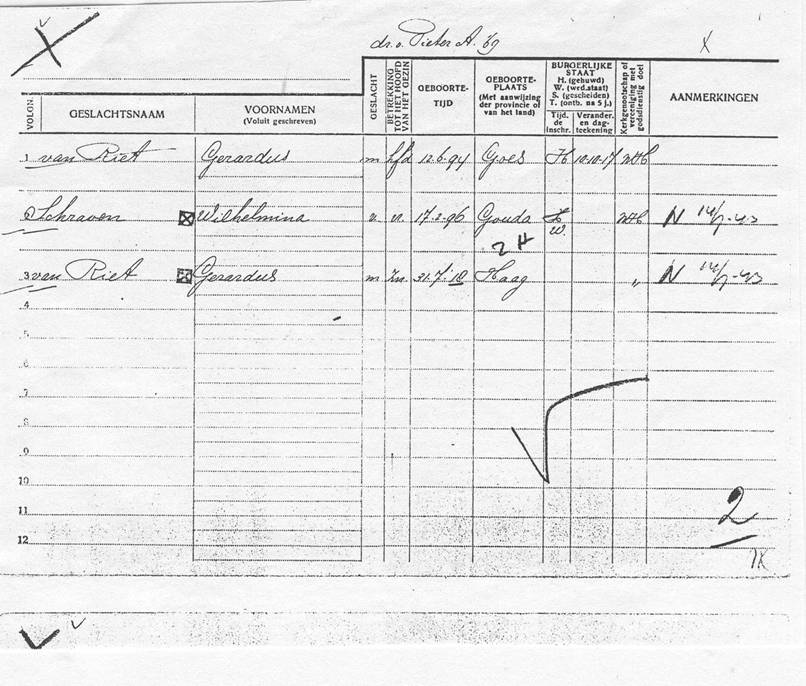 dr. v. Pieter A. 69 X
VOLGN. GESLACHTSNAAM VOORNAMEN (Voluit geschreven) GESLACHT BETREKKING TOT HET HOOFD VAN HET GEZIN GEBOORTE-TIJD GEBOORTE-PLAATS (Met aanwijzing der provincie of van het land) BURGERLIJKE STAAT H. (gehuwd) W. (wed.staat) S. (gescheiden) T. (ontb. na 5 j.) Tijd. de inschr. Verander. en dag-teekening Kerkgenootschap of vereeniging met godsdienstig doel AANMERKINGEN
1 van Riet Gerardus m hfd 12.6.94 Goes H 10.10.17 NH
2 Schraven Wilhelmina v. v. 17.2.96 Gouda H W. NH N
2 H
3 van Riet Gerardus m zn. 31.7.18 Haag " N
4
5
6
7
8
9
10
11 2
12